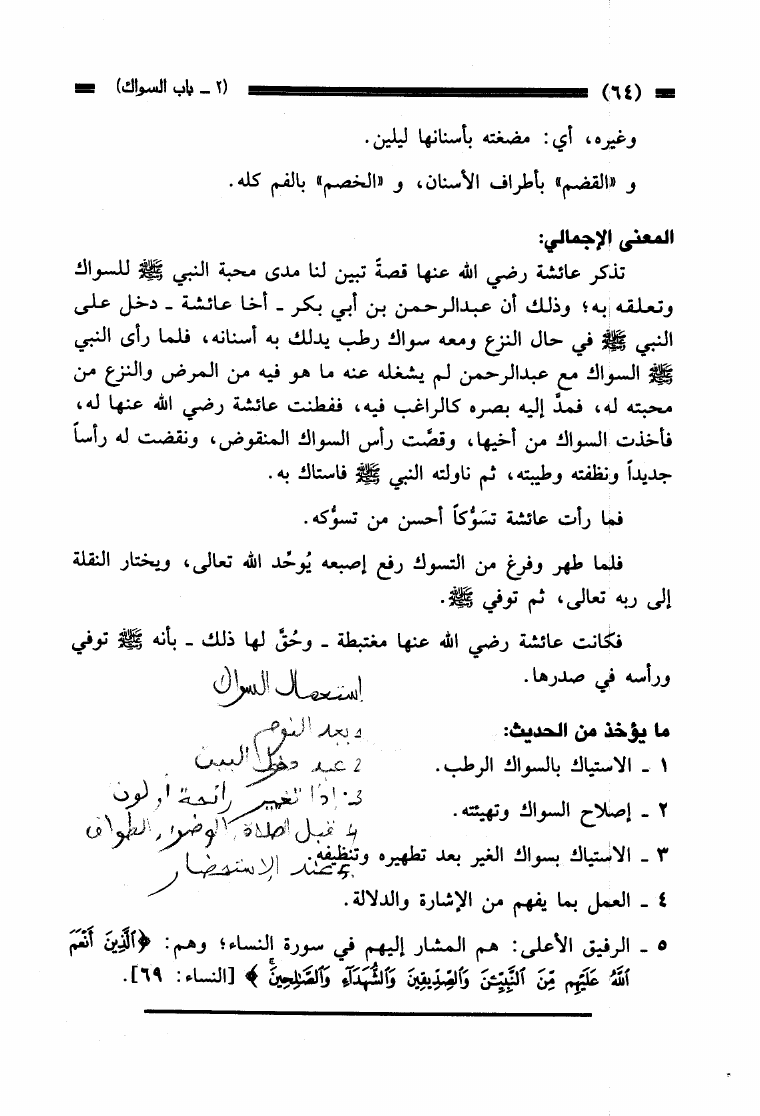 (٦٤) (٢ ـ باب السواك)
وغيره، أي: مضغته بأسنانها ليلين.
و «القضم» بأطراف الأسنان، و «الخصم» بالفم كله.
المعنى الإجمالي:
تذكر عائشة رضي الله عنها قصةً تبين لنا مدى محبة النبي ﷺ للسواك
وتعلقه به؛ وذلك أن عبدالرحمن بن أبي بكر ـ أخا عائشة ـ دخل على
النبي ﷺ في حال النزع ومعه سواك رطب يدلك به أسنانه، فلما رأى النبي
ﷺ السواك مع عبدالرحمن لم يشغله عنه ما هو فيه من المرض والنزع من
محبته له، فمدَّ إليه بصره كالراغب فيه، ففطنت عائشة رضي الله عنها له،
فأخذت السواك من أخيها، وقصَّت رأس السواك المنقوض، ونقضت له رأساً
جديداً ونظفته وطيبته، ثم ناولته النبي ﷺ فاستاك به.
فما رأت عائشة تسَوُّكاً أحسن من تسوُّكه.
فلما طهر وفرغ من التسوك رفع إصبعه يُوحِّد الله تعالى، ويختار النقلة
إلى ربه تعالى، ثم توفي ﷺ.
فكانت عائشة رضي الله عنها مغتبطة ـ وحُقَّ لها ذلك ـ بأنه ﷺ توفي
ورأسه في صدرها.
إستعمال السواك
ما يؤخذ من الحديث:
1 بعد النوم
١ ـ الاستياك بالسواك الرطب.
2 عند دخول البيت
3. إذا تغير رائحة أو لون
٢ ـ إصلاح السواك وتهيئته.
4 قبل الصلاة، الوضوء، الطواف
٣ ـ الاستياك بسواك الغير بعد تطهيره وتنظيفه.
5 عند الإستحضار
٤ ـ العمل بما يفهم من الإشارة والدلالة.
٥ ـ الرفيق الأعلى: هم المشار إليهم في سورة النساء؛ وهم: ﴿ٱلَّذِينَ أَنْعَمَ
ٱللَّهُ عَلَيْهِم مِّنَ ٱلنَّبِيِّـۧنَ وَٱلصِّدِّيقِينَ وَٱلشُّهَدَآءِ وَٱلصَّـٰلِحِينَۚ﴾ [النساء: ٦٩].